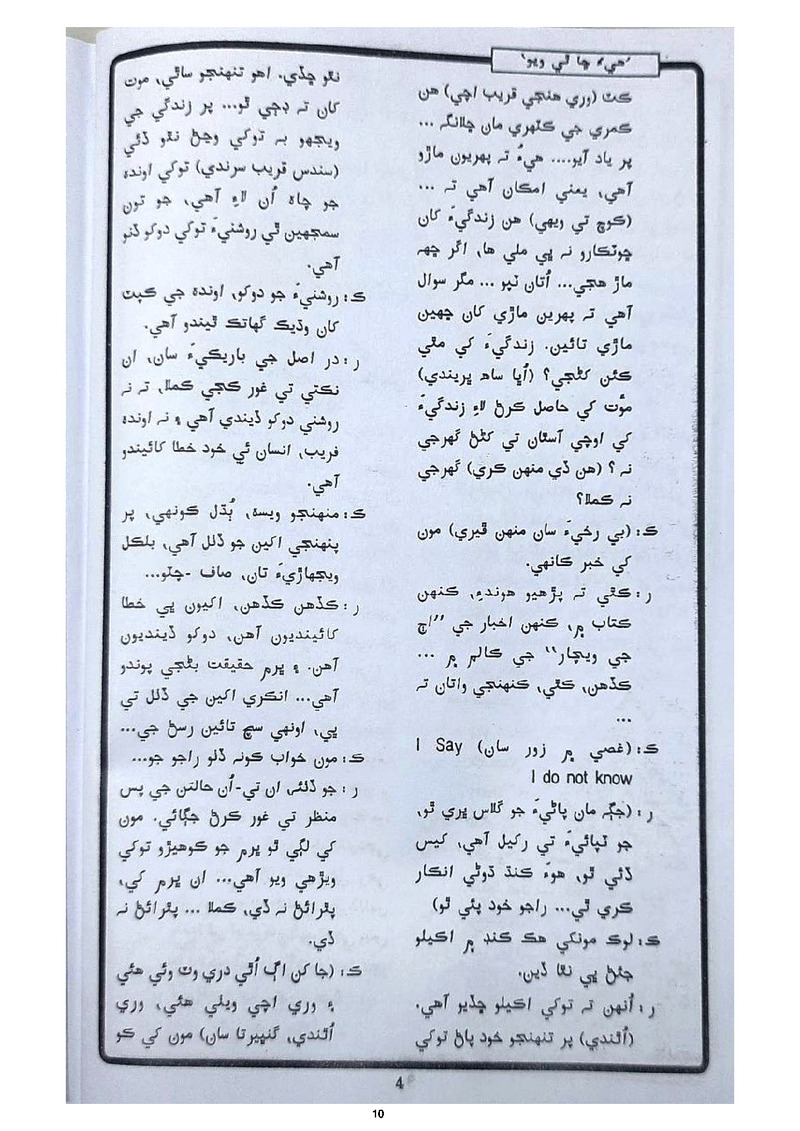 'هيءُ ڇا ٿي ويو'
ڪٿ (وري هنجي قريب اچي) هن
ڪمري جي ڪٽهري مان ڇلانگہ ...
پر ياد آيو.... هيءُ تہ پهريون ماڙو
آهي، يعني امڪان آهي تہ ...
(ڪوچ تي ويهي) هن زندگيءَ کان
ڇوٽڪارو نہ پي ملي ها، اگر ڇهہ
ماڙ هجي... اُتان ٽپو ... مگر سوال
آهي تہ پهرين ماڙي کان ڇهين
ماڙي تائين. زندگيءَ کي مٿي
ڪئن کڻجي؟ (اُڀا ساهہ ڀريندي)
موُت کي حاصل ڪرڻ لاءِ زندگيءَ
کي اوچي آسٿان تي کڻڻ گهرجي
نہ؟ (هن ڏي منهن ڪري) گهرجي
نہ ڪملا؟
ڪ: (بي رخيءَ سان منهن ڦيري) مون
کي خبر کانهي.
ر: ڪٿي تہ پڙهيو هوندءِ، ڪنهن
ڪتاب ۾، ڪنهن اخبار جي ''اڄ
جي ويچار'' جي ڪالم ۾ ...
ڪڏهن، ڪٿي، ڪنهنجي واتان تہ
...
ڪ: (غصي ۾ زور سان) I Say
I do not know
ر: (جڳہ مان پاڻيءَ جو گلاس ڀري ٿو،
جو ٽپائيءَ تي رکيل آهي، ڪيس
ڏئي ٿو، هوءَ ڪنڌ ڌوڻي انڪار
ڪري ٿي... راجو خود پئي ٿو)
ڪ: لوڪ مونکي هڪ ڪنڊ ۾ اڪيلو
جئڻ پي نٿا ڏين.
ر: اُنهن تہ توکي اڪيلو ڇڏيو آهي.
(اُٿندي) پر تنهنجو خود پاڻ توکي
نٿو ڇڏي. اهو تنهنجو ساٿي، موت
کان تہ ڊڄي ٿو... پر زندگي جي
ويجهو بہ توکي وڃڻ نٿو ڏئي
(سندس قريب سرندي) توکي اونده
جو چاه اُن لاءِ آهي، جو تون
سمجهين ٿي روشنيءَ توکي دوکو ڏنو
آهي.
ڪ: روشنيءَ جو دوکو، اونده جي ڪپٽ
کان وڌيڪ گهاتڪ ٿيندو آهي.
ر: در اصل جي باريڪيءَ سان، ان
نڪتي تي غور ڪجي ڪملا، تہ نہ
روشني دوکو ڏيندي آهي ۽ نہ اونده
فريب، انسان ئي خود خطا کائيندو
آهي.
ڪ: منهنجو ويسه، ٻُڌل ڪونهي، پر
پنهنجي اکين جو ڏٺل آهي، بلڪل
ويجهاڙيءَ تان، صاف -چٽو...
ر: ڪڏهن ڪڏهن، اکيون پي خطا
کائينديون آهن، دوکو ڏينديون
آهن. ۽ ڀرم حقيقت بڻجي پوندو
آهي... انڪري اکين جي ڏٺل تي
پي، اونهي سچ تائين رسڻ جي...
ڪ: مون خواب کونہ ڏٺو راجو جو...
ر: جو ڏٺئہ ان تي-اُن حالتن جي پس
منظر تي غور ڪرڻ جڳائي. مون
کي لڳي ٿو ڀرم جو ڪوهيڙو توکي
ويڙهي ويو آهي... ان ڀرم کي،
پٿرائڻ نہ ڏي، ڪملا ... پٿرائڻ نہ
ڏي.
ڪ: (جا کن اڳ اُٿي دري وٽ وئي هئي
۽ وري اچي ويٺي هئي، وري
اُٿندي، گنڀيرتا سان) مون کي ڪو
4
10